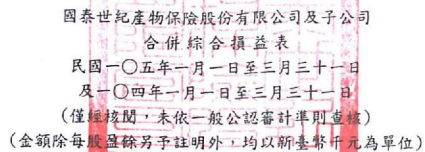 國泰世紀產物保險股份有限公司及子公司
合併綜合損益表
民國一〇五年一月一日至三月三十一日
及一〇四年一月一日至三月三十一日
(僅經核閱，未依一般公認審計準則查核)
(金額除每股盈餘另予註明外，均以新臺幣千元為單位)